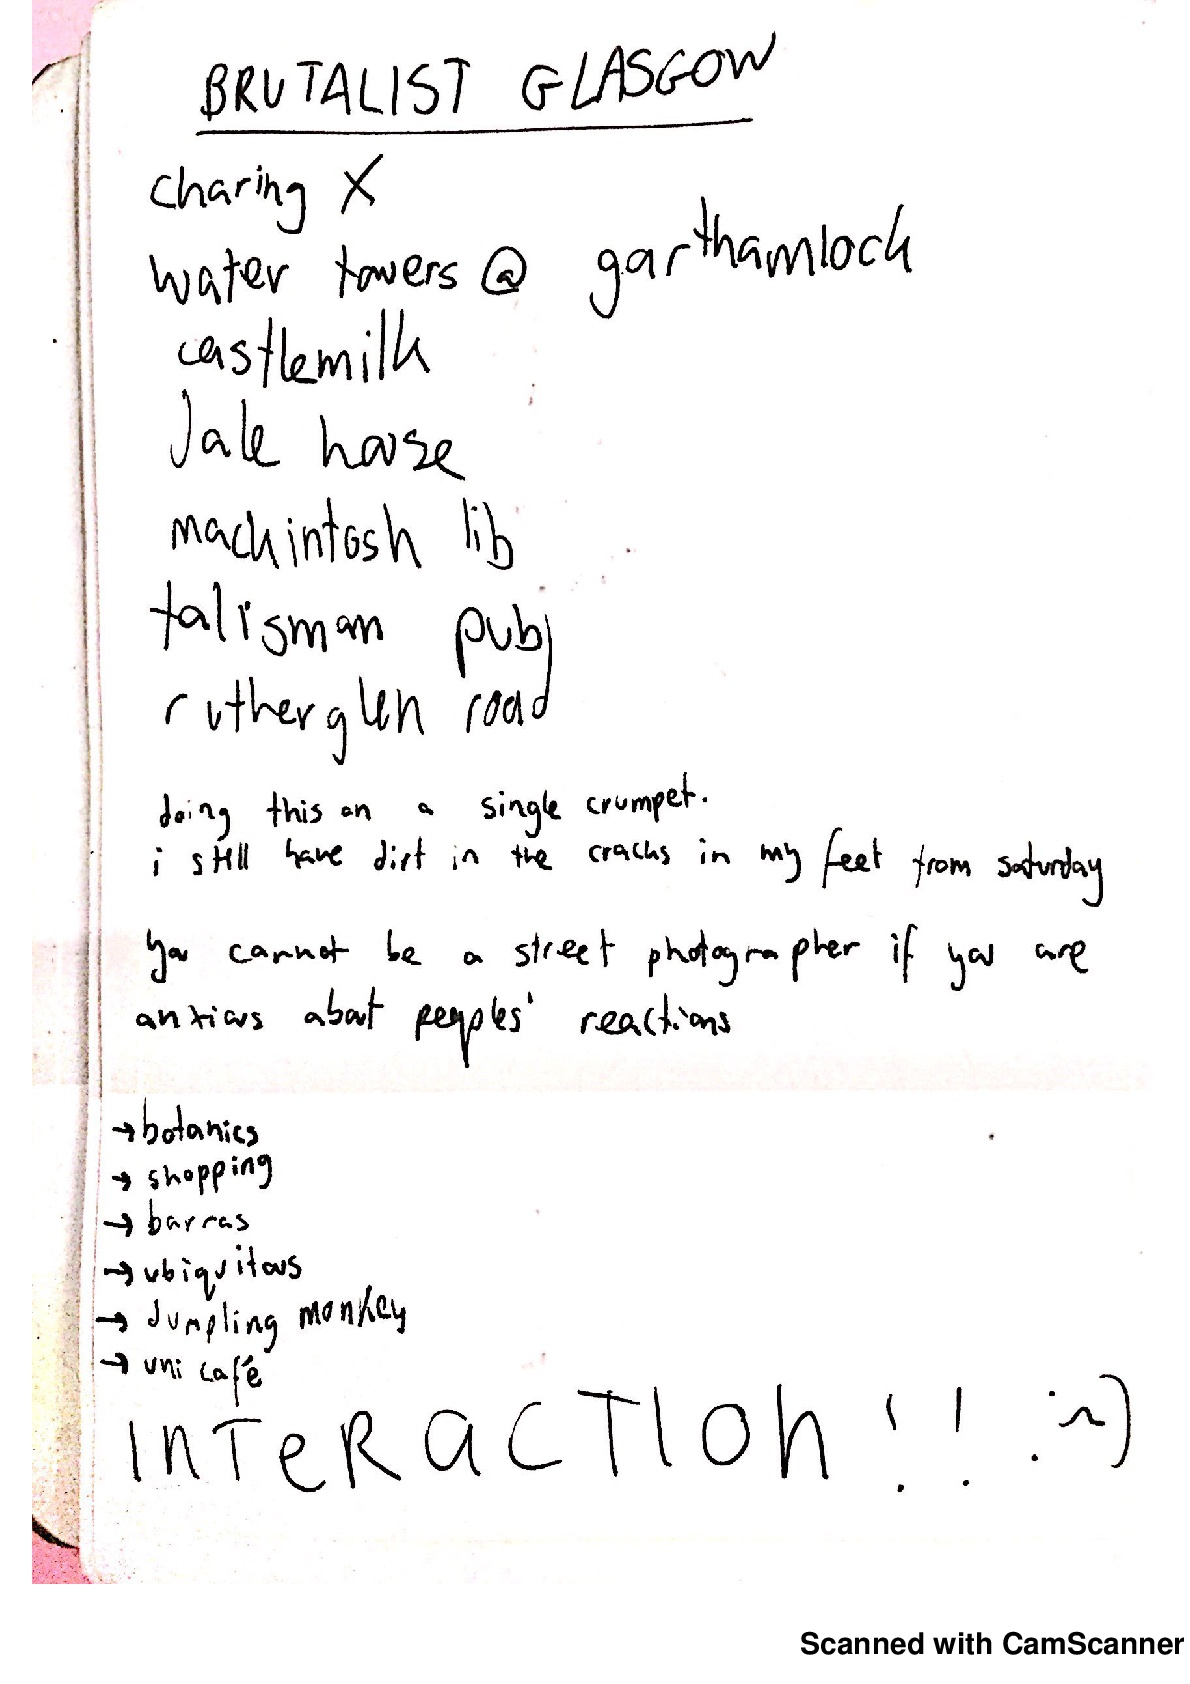 BRUTALIST GLASGOW
charing X
water towers @ garthamlock
castlemilk
dale house
mackintosh lib
talisman pub
rutherglen road
doing this on a single crumpet.
i still have dirt in the cracks in my feet from saturday
you cannot be a street photographer if you are
anxious about peoples' reactions
→ botanics
→ shopping
→ barras
→ ubiquitous
→ dumpling monkey
→ uni café
INTERACTION!! :~)
Scanned with CamScanner